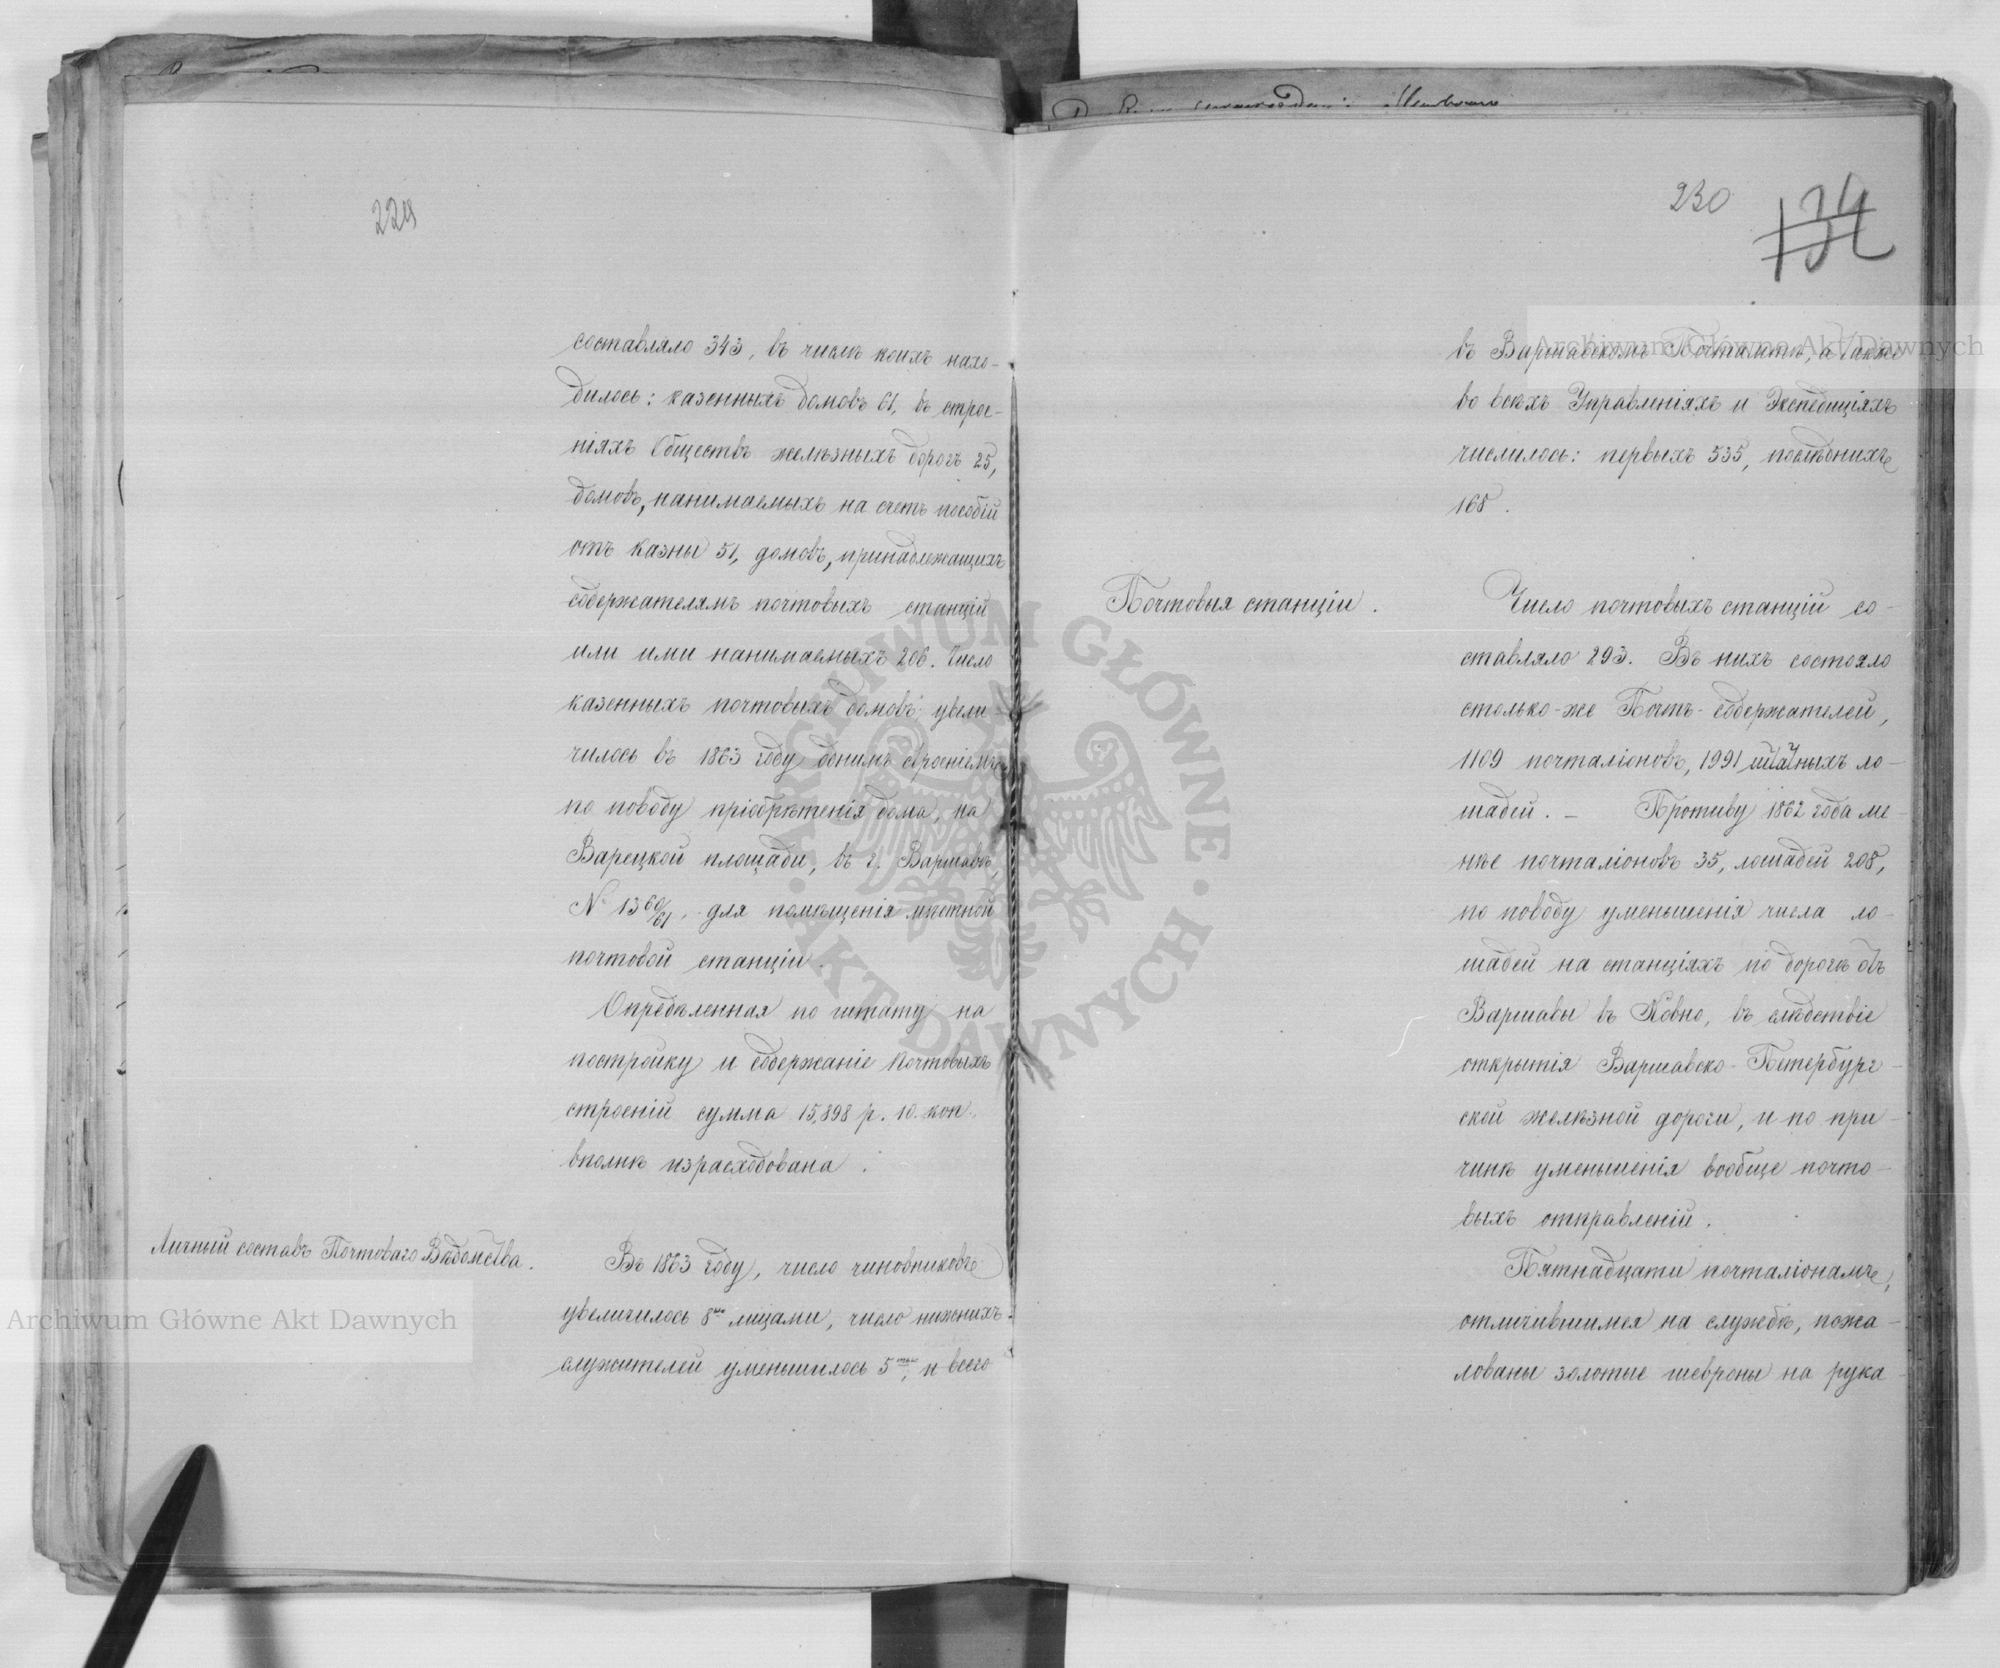 229
составляло 343, въ числѣ коихъ нахо-
дилось: казенныхъ домовъ 61, въ строе-
ніяхъ Обществъ желѣзныхъ дорогъ 25,
домовъ, нанимаемыхъ на счетъ пособій
отъ казны 51, домовъ, принадлежащихъ
содержателямъ почтовыхъ станцій
или ими нанимаемыхъ 206. Число
казенныхъ почтовыхъ домовъ увели-
чилось въ 1863 году однимъ строеніемъ
по поводу пріобрѣтенія дома, на
Варецкой площади, въ г. Варшавѣ,
№ 1360/61, для помѣщенія мѣстной
почтовой станціи.
Опредѣленная по штату на
постройку и содержаніе почтовыхъ
строеній сумма 15,898 р. 10. коп.
вполнѣ израсходована.
Личный составъ Почтоваго Вѣдомства.
Въ 1863 году, число чиновниковъ
увеличилось 8ю лицами, число нижнихъ
служителей уменьшилось 5тью, и всего
230
въ Варшавскомъ Почтамтѣ, а также
во всѣхъ Управленіяхъ и Экспедиціяхъ
числилось: первыхъ 535, послѣднихъ
168.
Почтовыя станціи.
Число почтовыхъ станцій со-
ставляло 293. Въ нихъ состояло
столько-же Почтъ-содержателей,
1109 почталіоновъ, 1991 штатныхъ ло-
шадей. – Противу 1862 года ме-
нѣе почталіоновъ 35, лошадей 208,
по поводу уменьшенія числа ло-
шадей на станціяхъ по дорогѣ отъ
Варшавы въ Ковно, въ слѣдствіе
открытія Варшавско-Петербург-
ской желѣзной дороги, и по при-
чинѣ уменьшенія вообще почто-
выхъ отправленій.
Пятнадцати почталіонамъ,
отличившимся на службѣ, пожа-
лованы золотые шевроны на рука-
Archiwum Główne Akt Dawnych
Archiwum Główne Akt Dawnych
ARCHIWUM GŁÓWNE • AKT DAWNYCH •